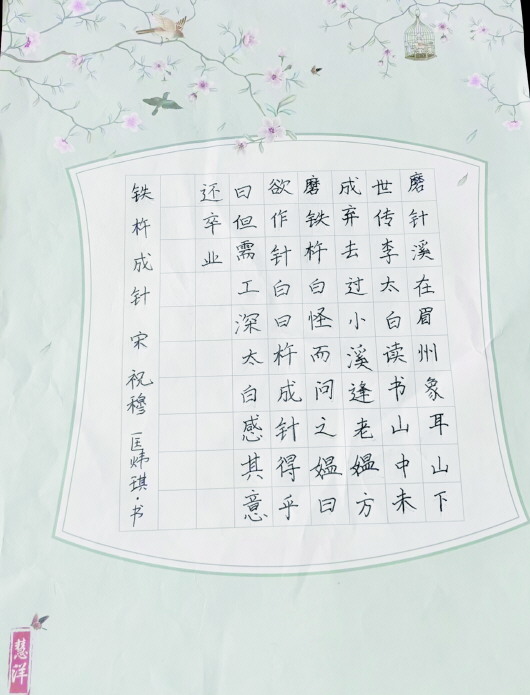 磨针溪在眉州象耳山下
世传李太白读书山中未
成弃去过小溪逢老媪方
磨铁杵白怪而问之媪曰
欲作针白曰杵成针得乎
曰但需工深太白感其意
还卒业
铁杵成针 宋 祝穆 匡炜琪·书
慧洋